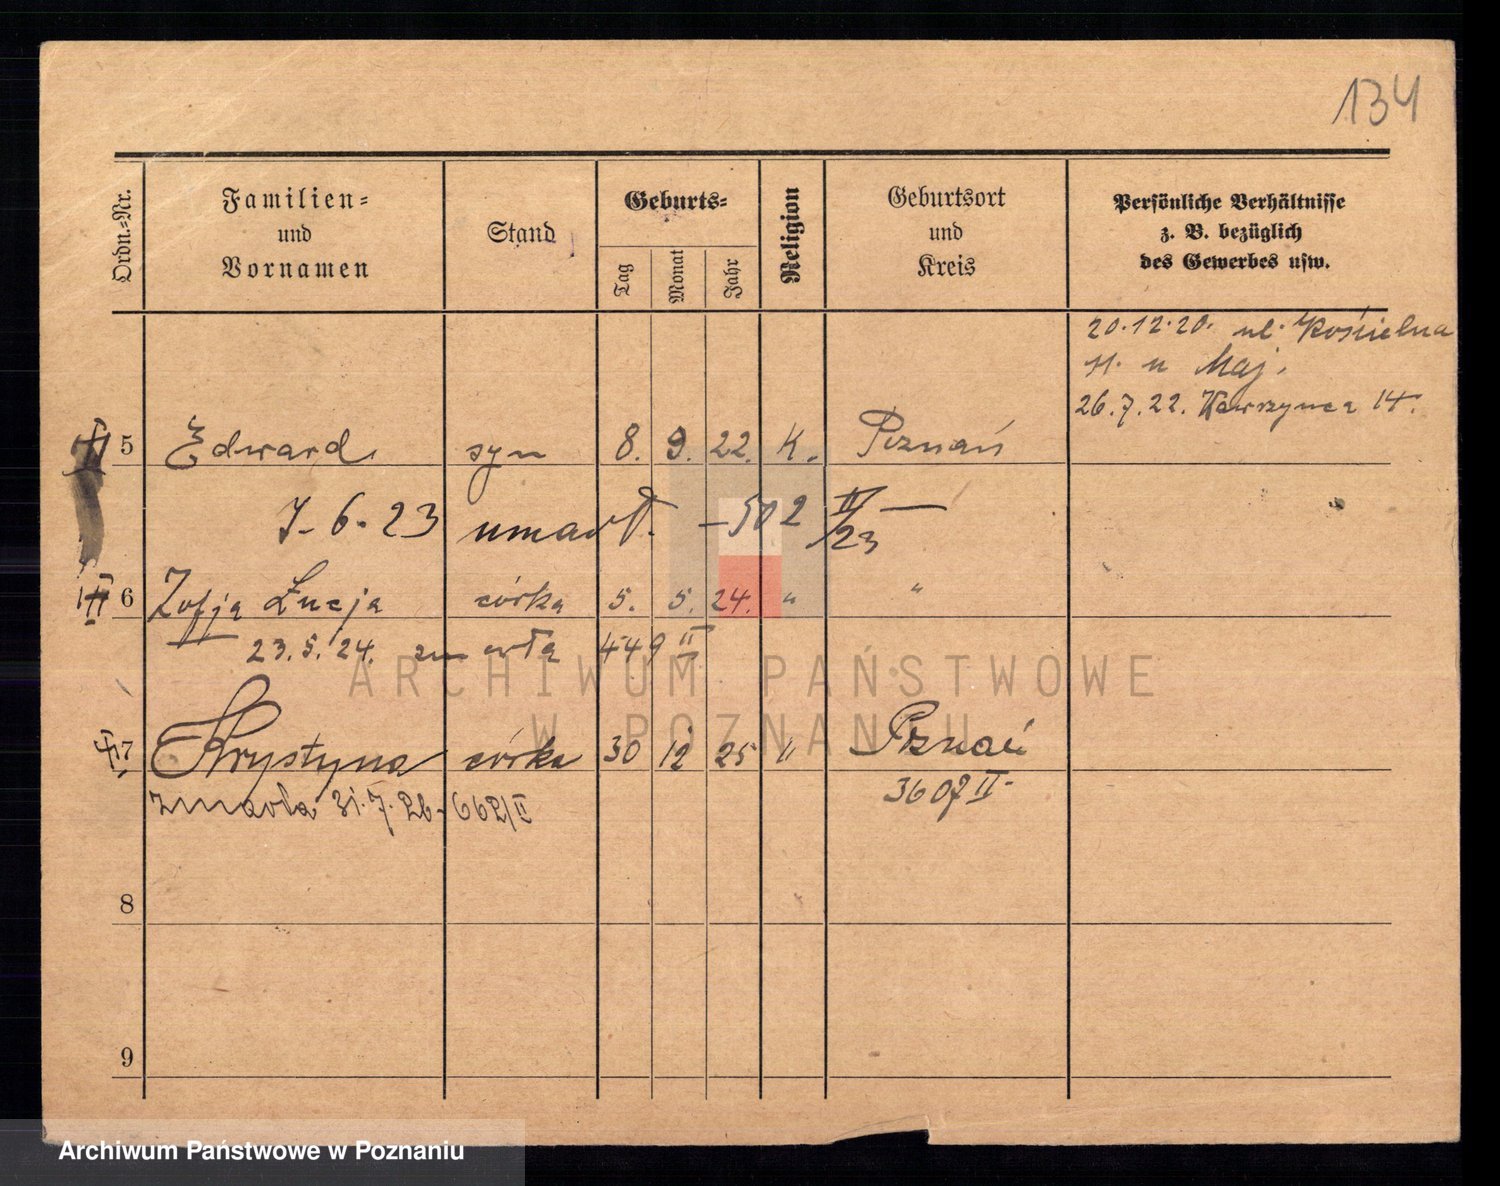 134
Ordn.-Nr.
Familien-
und
Vornamen
Stand
Geburts-
Tag
Monat
Jahr
Religion
Geburtsort
und
Kreis
Persönliche Verhältnisse
z. B. bezüglich
des Gewerbes usw.
20.12.20. ul. Kościelna
11. u Maj.
26.7.22. Wawrzyńca 14.
5 Edward syn 8. 9. 22. K. Poznań
7-6-23 umarł. -502 II/23
6 Zofja Łucja córka 5. 5. 24. " "
23.5.24. zmarła 449 II
ARCHIWUM PAŃSTWOWE
W POZNANIU
7 Krystyna córka 30 12 25 " Poznań
3607 II-
zmarła 31.7.26- 662/II
8
9
Archiwum Państwowe w Poznaniu